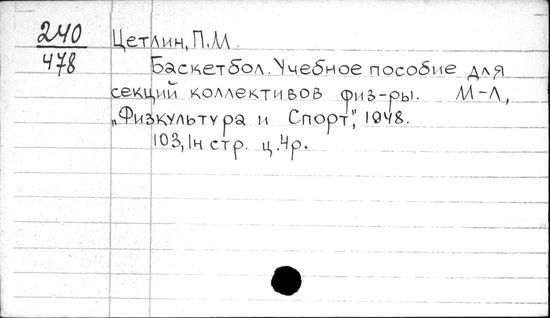 240
478
Цетлин, П.М.
Баскетбол. Учебное пособие для
секций коллективов физ-ры. М-Л,
„Физкультура и Спорт", 1948.
103, 1н стр. ц.4р.